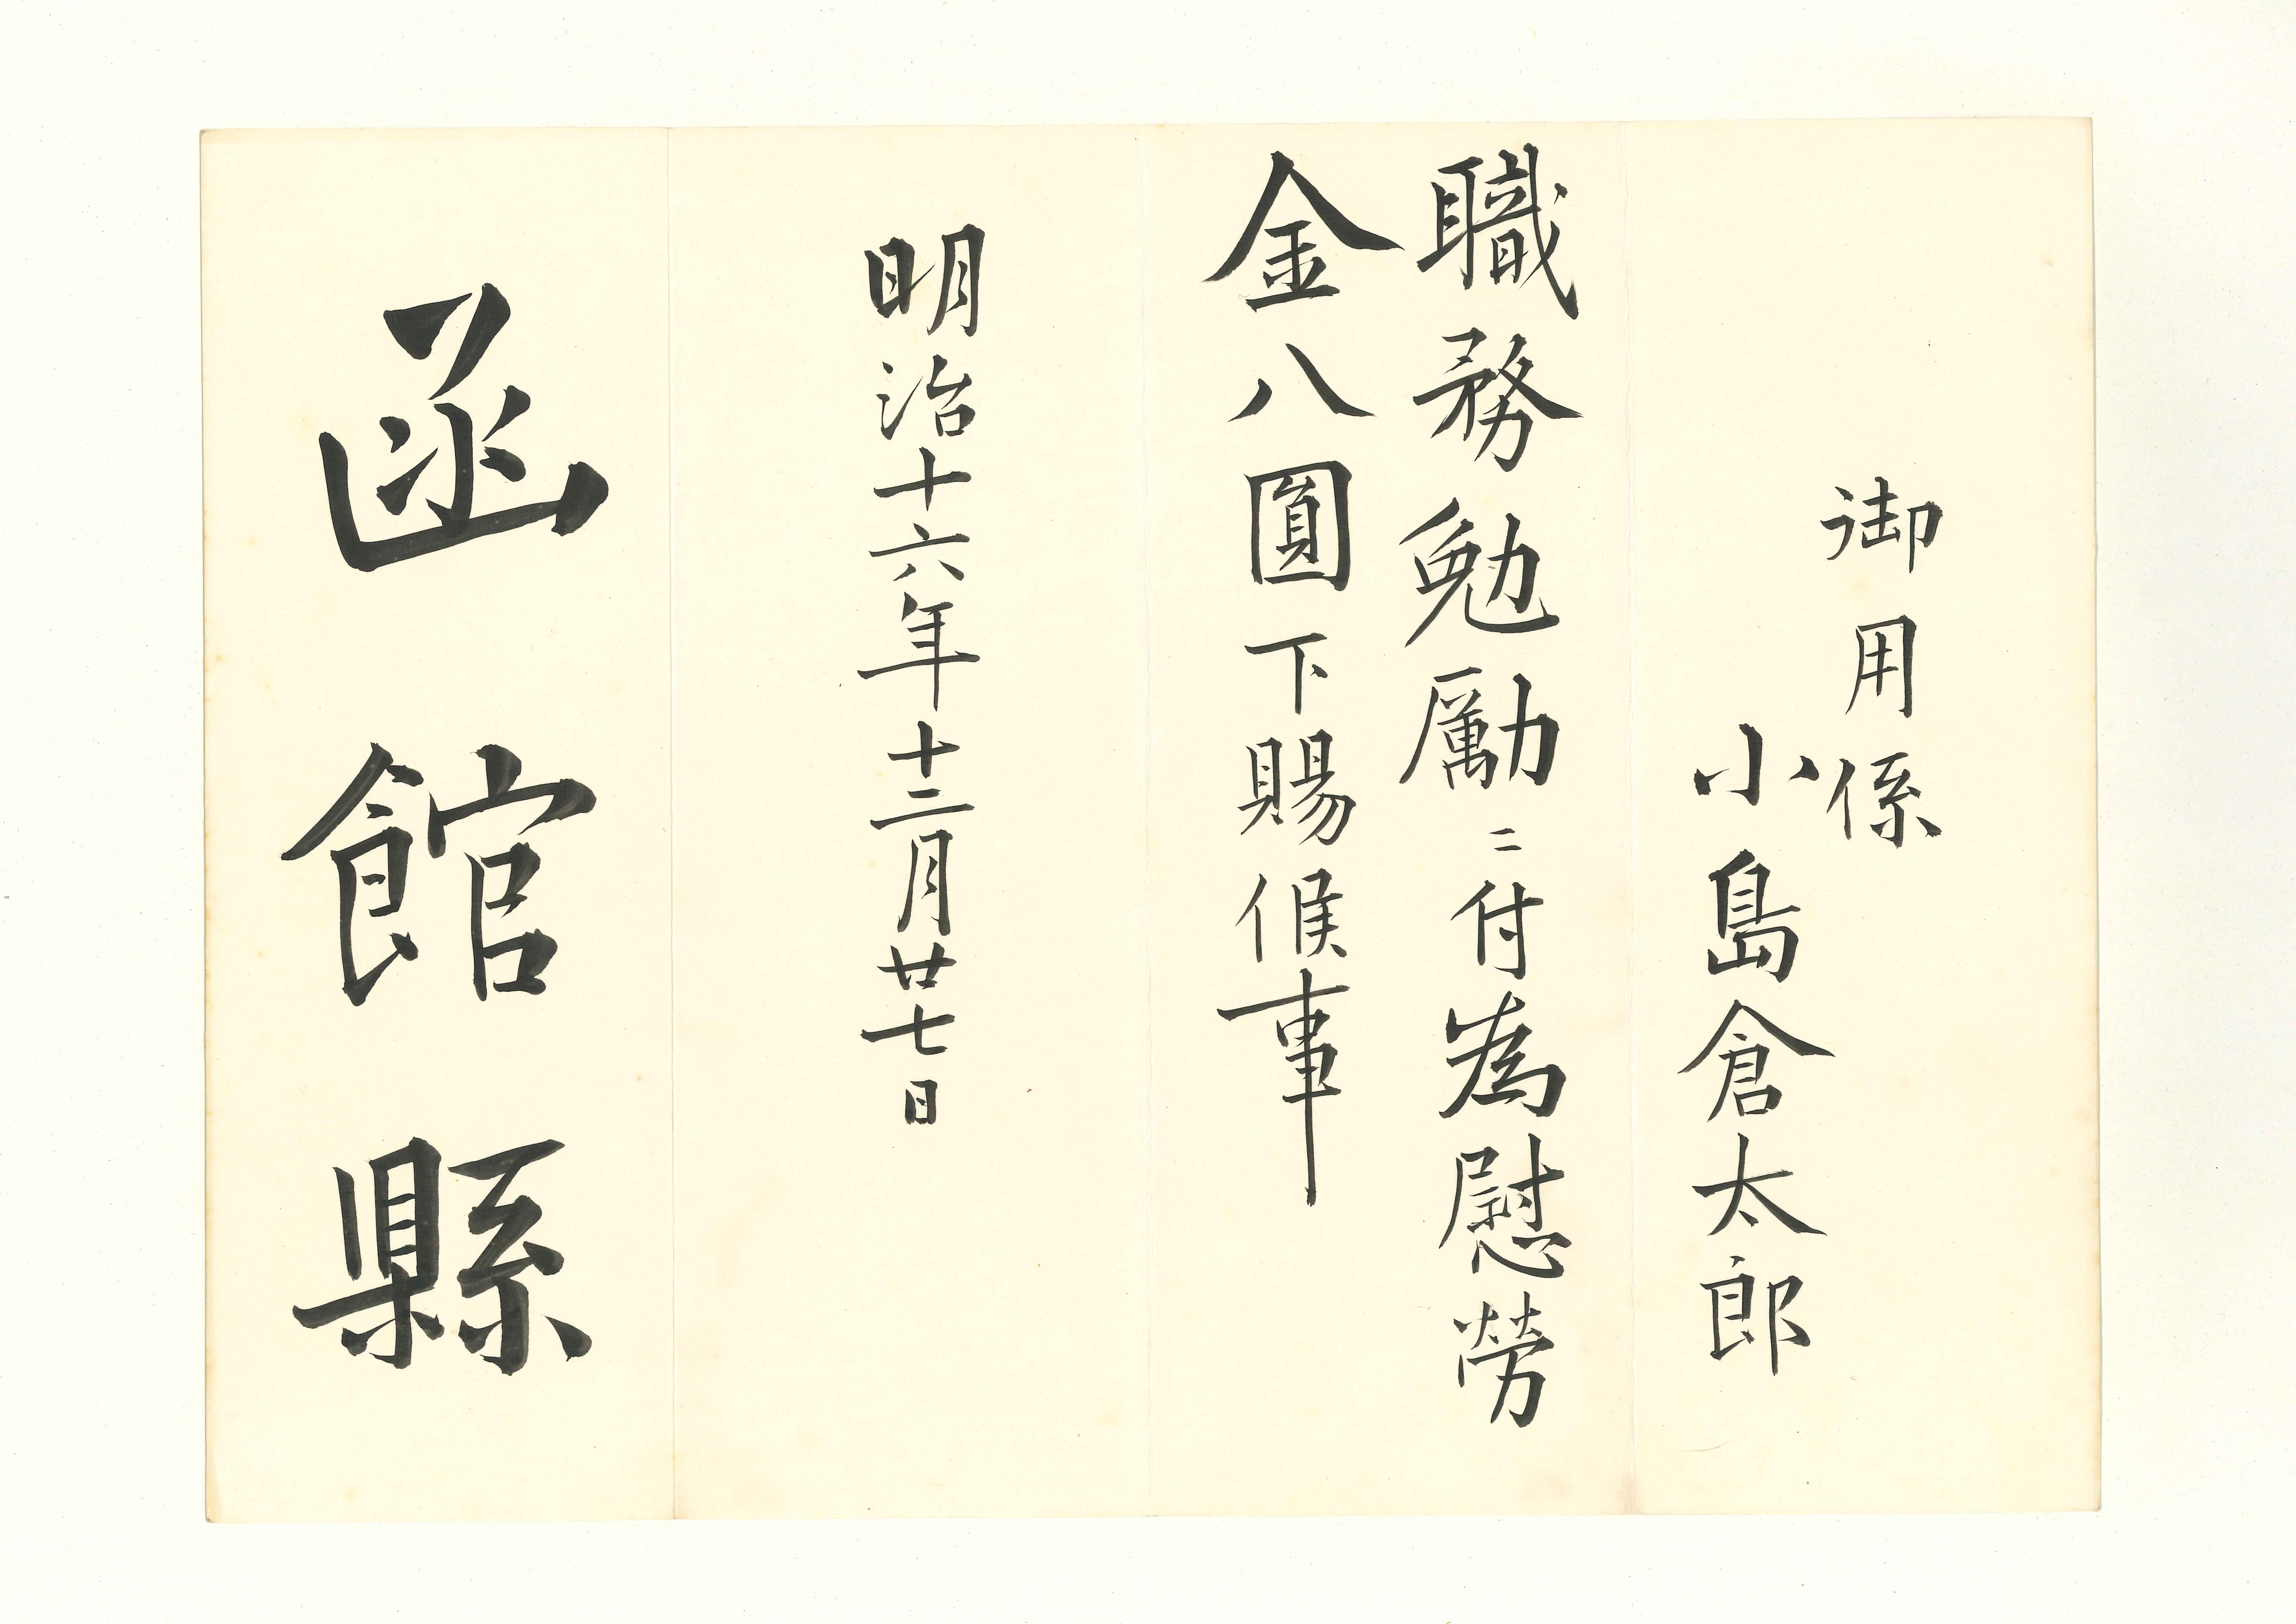 御用係
小島倉太郎
職務勉勵ニ付為慰勞
金八圓下賜候事
明治十六年十二月廿七日
函館縣